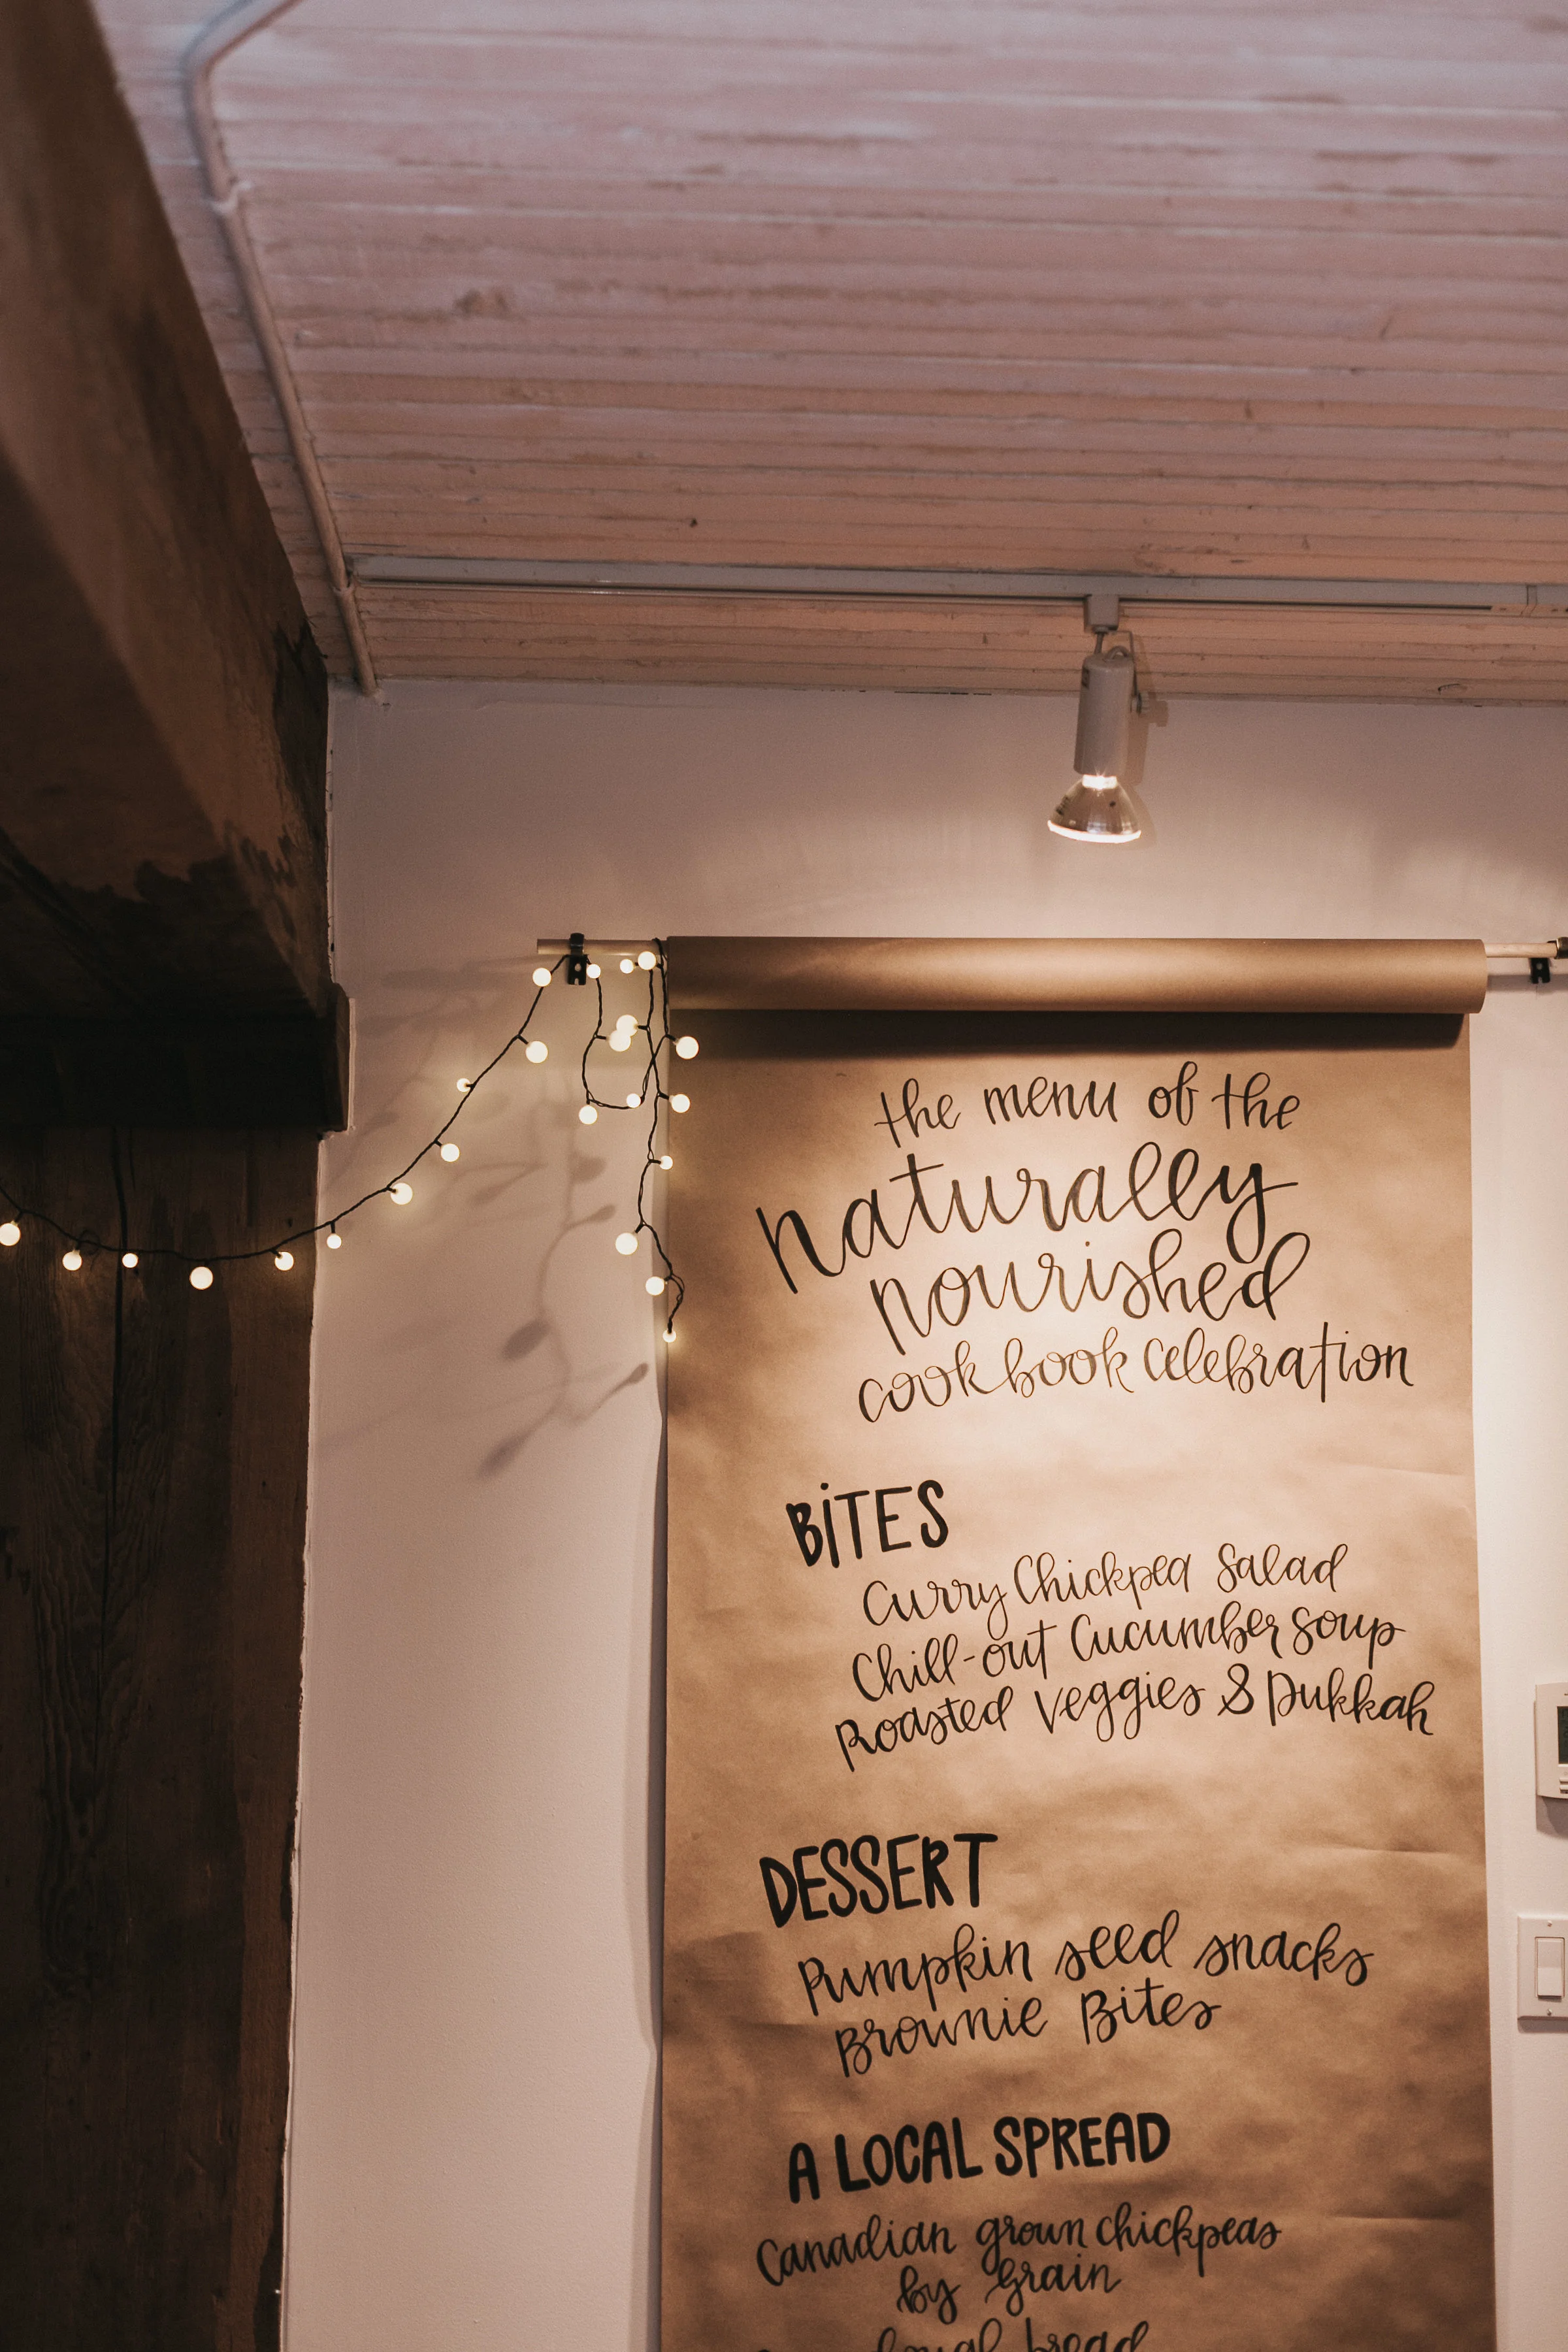 the menu of the
naturally
nourished
cookbook celebration
BITES
Curry Chickpea Salad
Chill-out Cucumber Soup
Roasted Veggies & Dukkah
DESSERT
Pumpkin seed snacks
Brownie Bites
A LOCAL SPREAD
Canadian grown chickpeas
by Grain
local bread